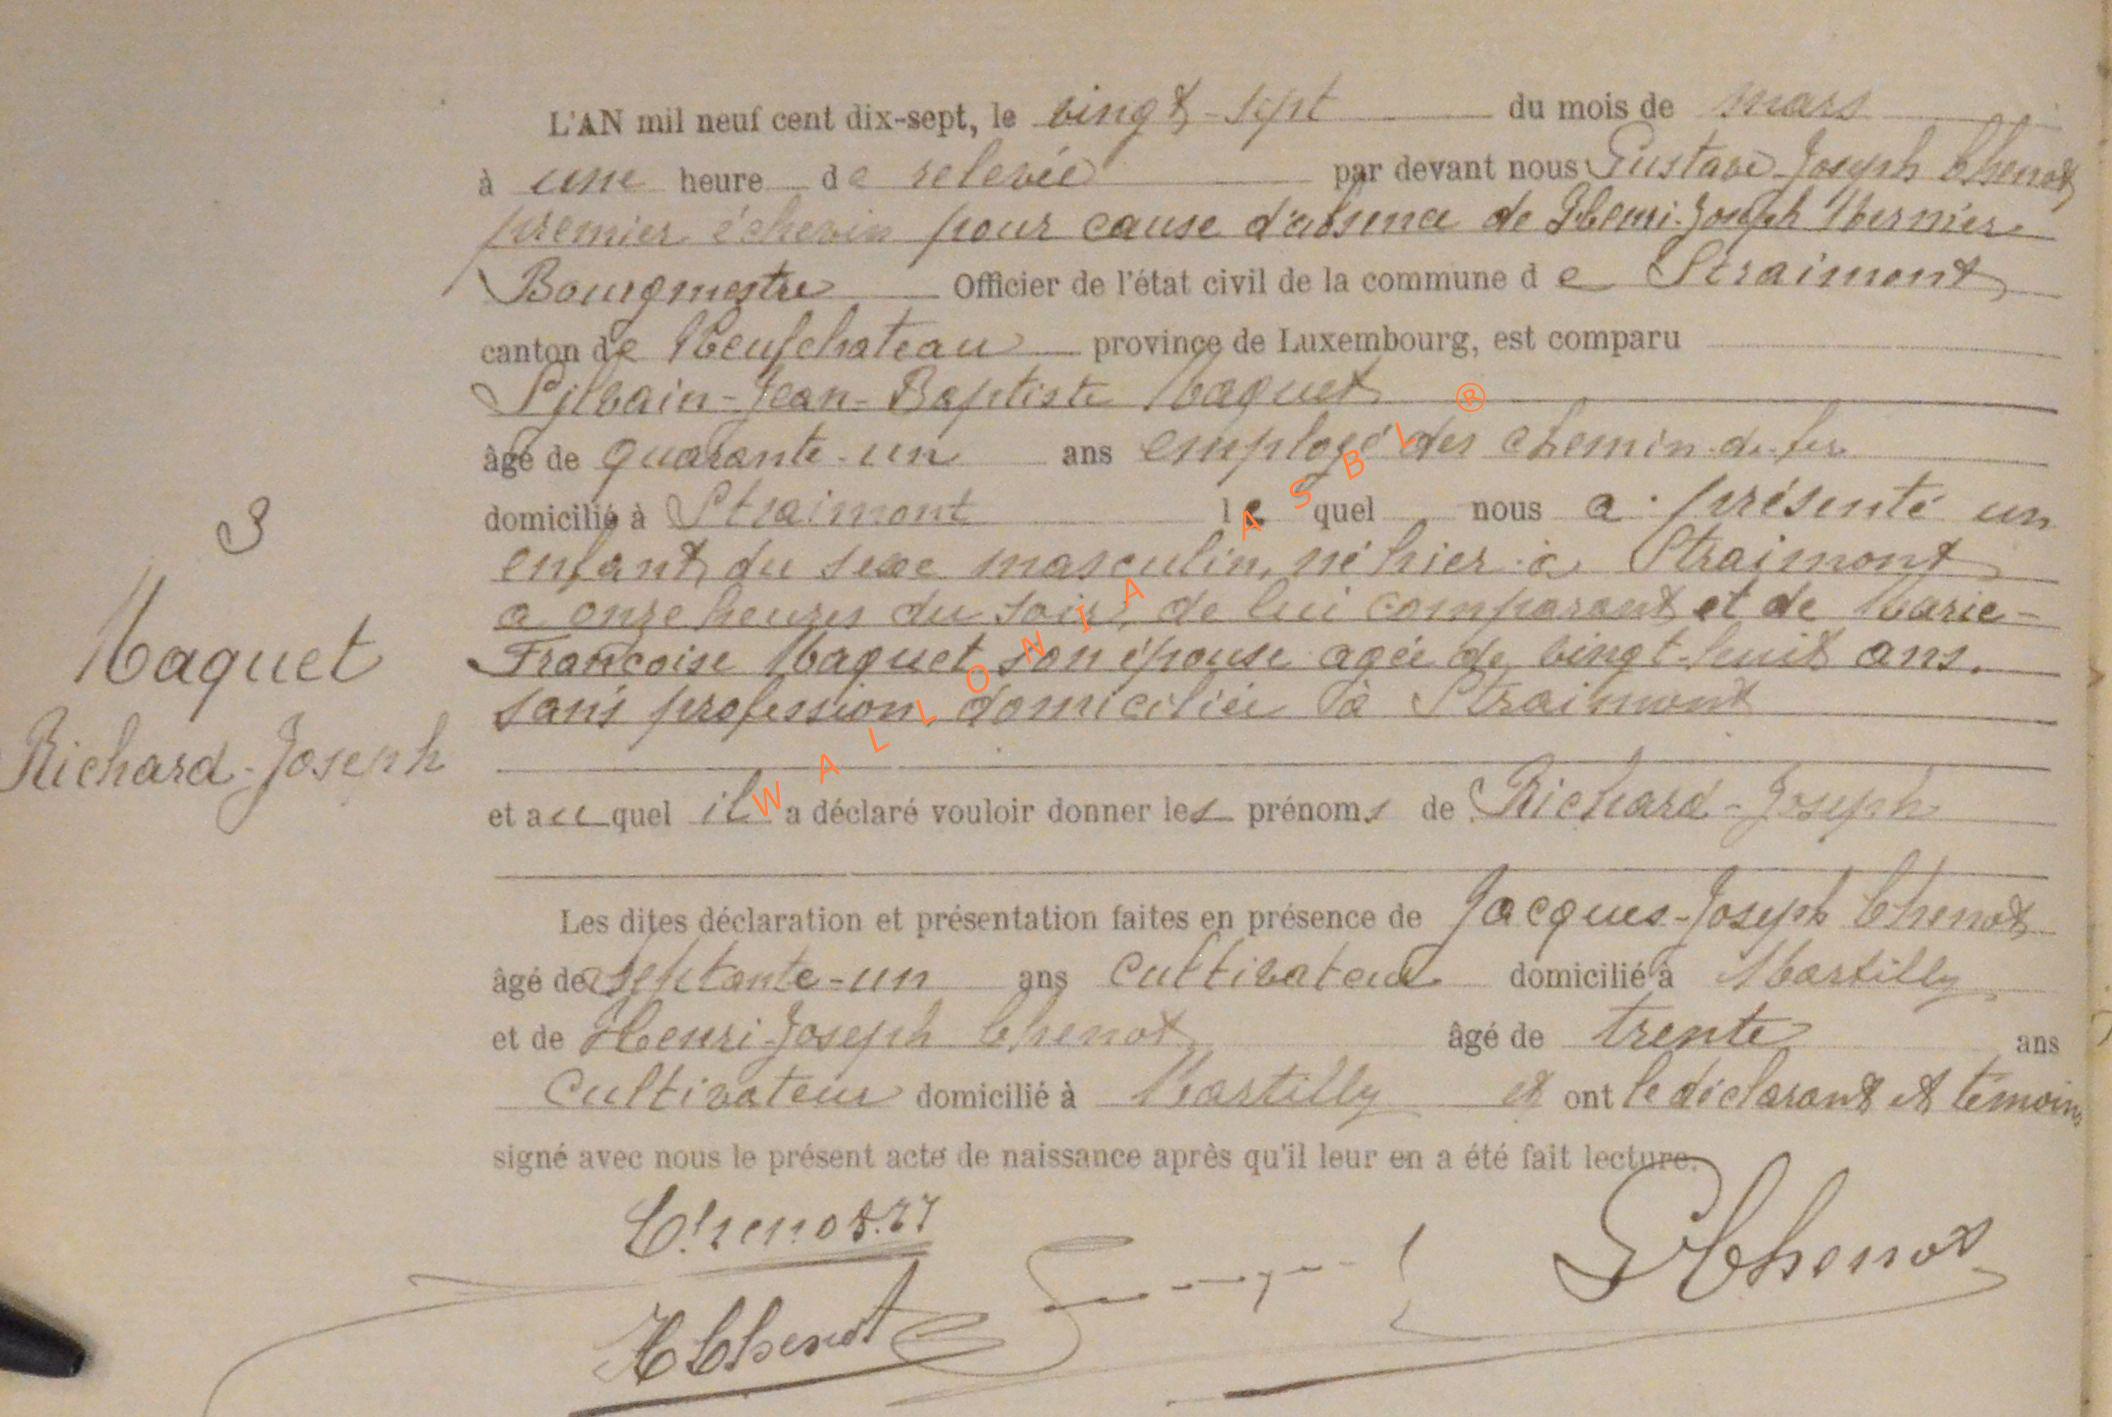 L'AN mil neuf cent dix-sept, le vingt-sept du mois de mars
à une heure de relevée par devant nous Gustave-Joseph Chenot
premier échevin pour cause d'absence de Henri-Joseph Mernier
Bourgmestre Officier de l'état civil de la commune de Straimont
canton de Neufchateau province de Luxembourg, est comparu
Sylvain-Jean-Baptiste Maquet
âgé de quarante-un ans employé des chemin-de-fer
domicilié à Straimont lequel nous a présenté un
enfant du sexe masculin, né hier à Straimont
a onze heures du soir, de lui comparant et de Marie-
Francoise Maquet son épouse agée de vingt-huit ans.
sans profession domiciliée à Straimont
3
Maquet
Richard-Joseph
et auquel il a déclaré vouloir donner les prénoms de Richard-Joseph
Les dites déclaration et présentation faites en présence de Jacques-Joseph Chenot
âgé de septante-un ans cultivateur domicilié à Martilly
et de Henri-Joseph Chenot âgé de trente ans
cultivateur domicilié à Martilly et ont le déclarant et témoins
signé avec nous le présent acte de naissance après qu'il leur en a été fait lecture.
Chenot.
G Chenot
H Chenot
WALLONIA ASBL ®